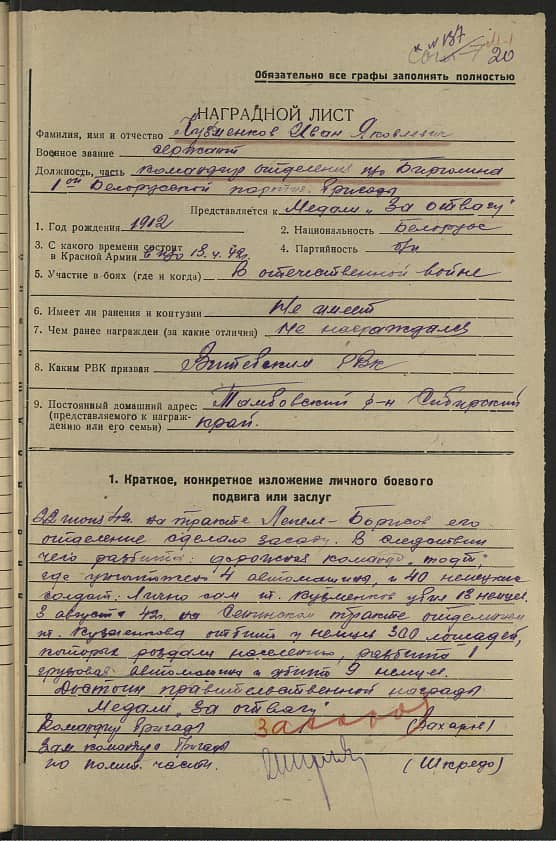 20
Обязательно все графы заполнять полностью
НАГРАДНОЙ ЛИСТ
Фамилия, имя и отчество Кузменков Иван Яковлевич
Военное звание сержант
Должность, часть командир отделения п/о Бирюлина
1ой Белорусской партиз. бригады
Представляется к Медали „За отвагу"
1. Год рождения 1912 2. Национальность Белорус
3. С какого времени состоит
в Красной Армии 13.4.42г. 4. Партийность б/п
5. Участие в боях (где и когда) В отечественной войне
6. Имеет ли ранения и контузии Не имеет
7. Чем ранее награжден (за какие отличия) не награждался
8. Каким РВК призван Витебским РВК
9. Постоянный домашний адрес: Тамбовский р-н Сибирский
(представляемого к награж-
дению или его семьи) край.
1. Краткое, конкретное изложение личного боевого
подвига или заслуг
22 июня 42г. на тракте Лепель – Борисов его
отделение сделало засаду. В следствии
чего разбита дорожная команда „тодт",
где уничтожен 4 автомашины, и 40 немецких
солдат. Лично сам т. Кузменков убил 13 немцев.
3 августа 42г. на Сенинском тракте отделением
т. Кузменкова отбит у немцев 300 лошадей,
которых роздали населению, разбита 1
грузовая автомашина и убито 9 немцев.
Достоин правительственной награды
Медали „За отвагу"
Командир бригады (Захаров)
Зам командира бригады
по полит. части. (Шкредо)